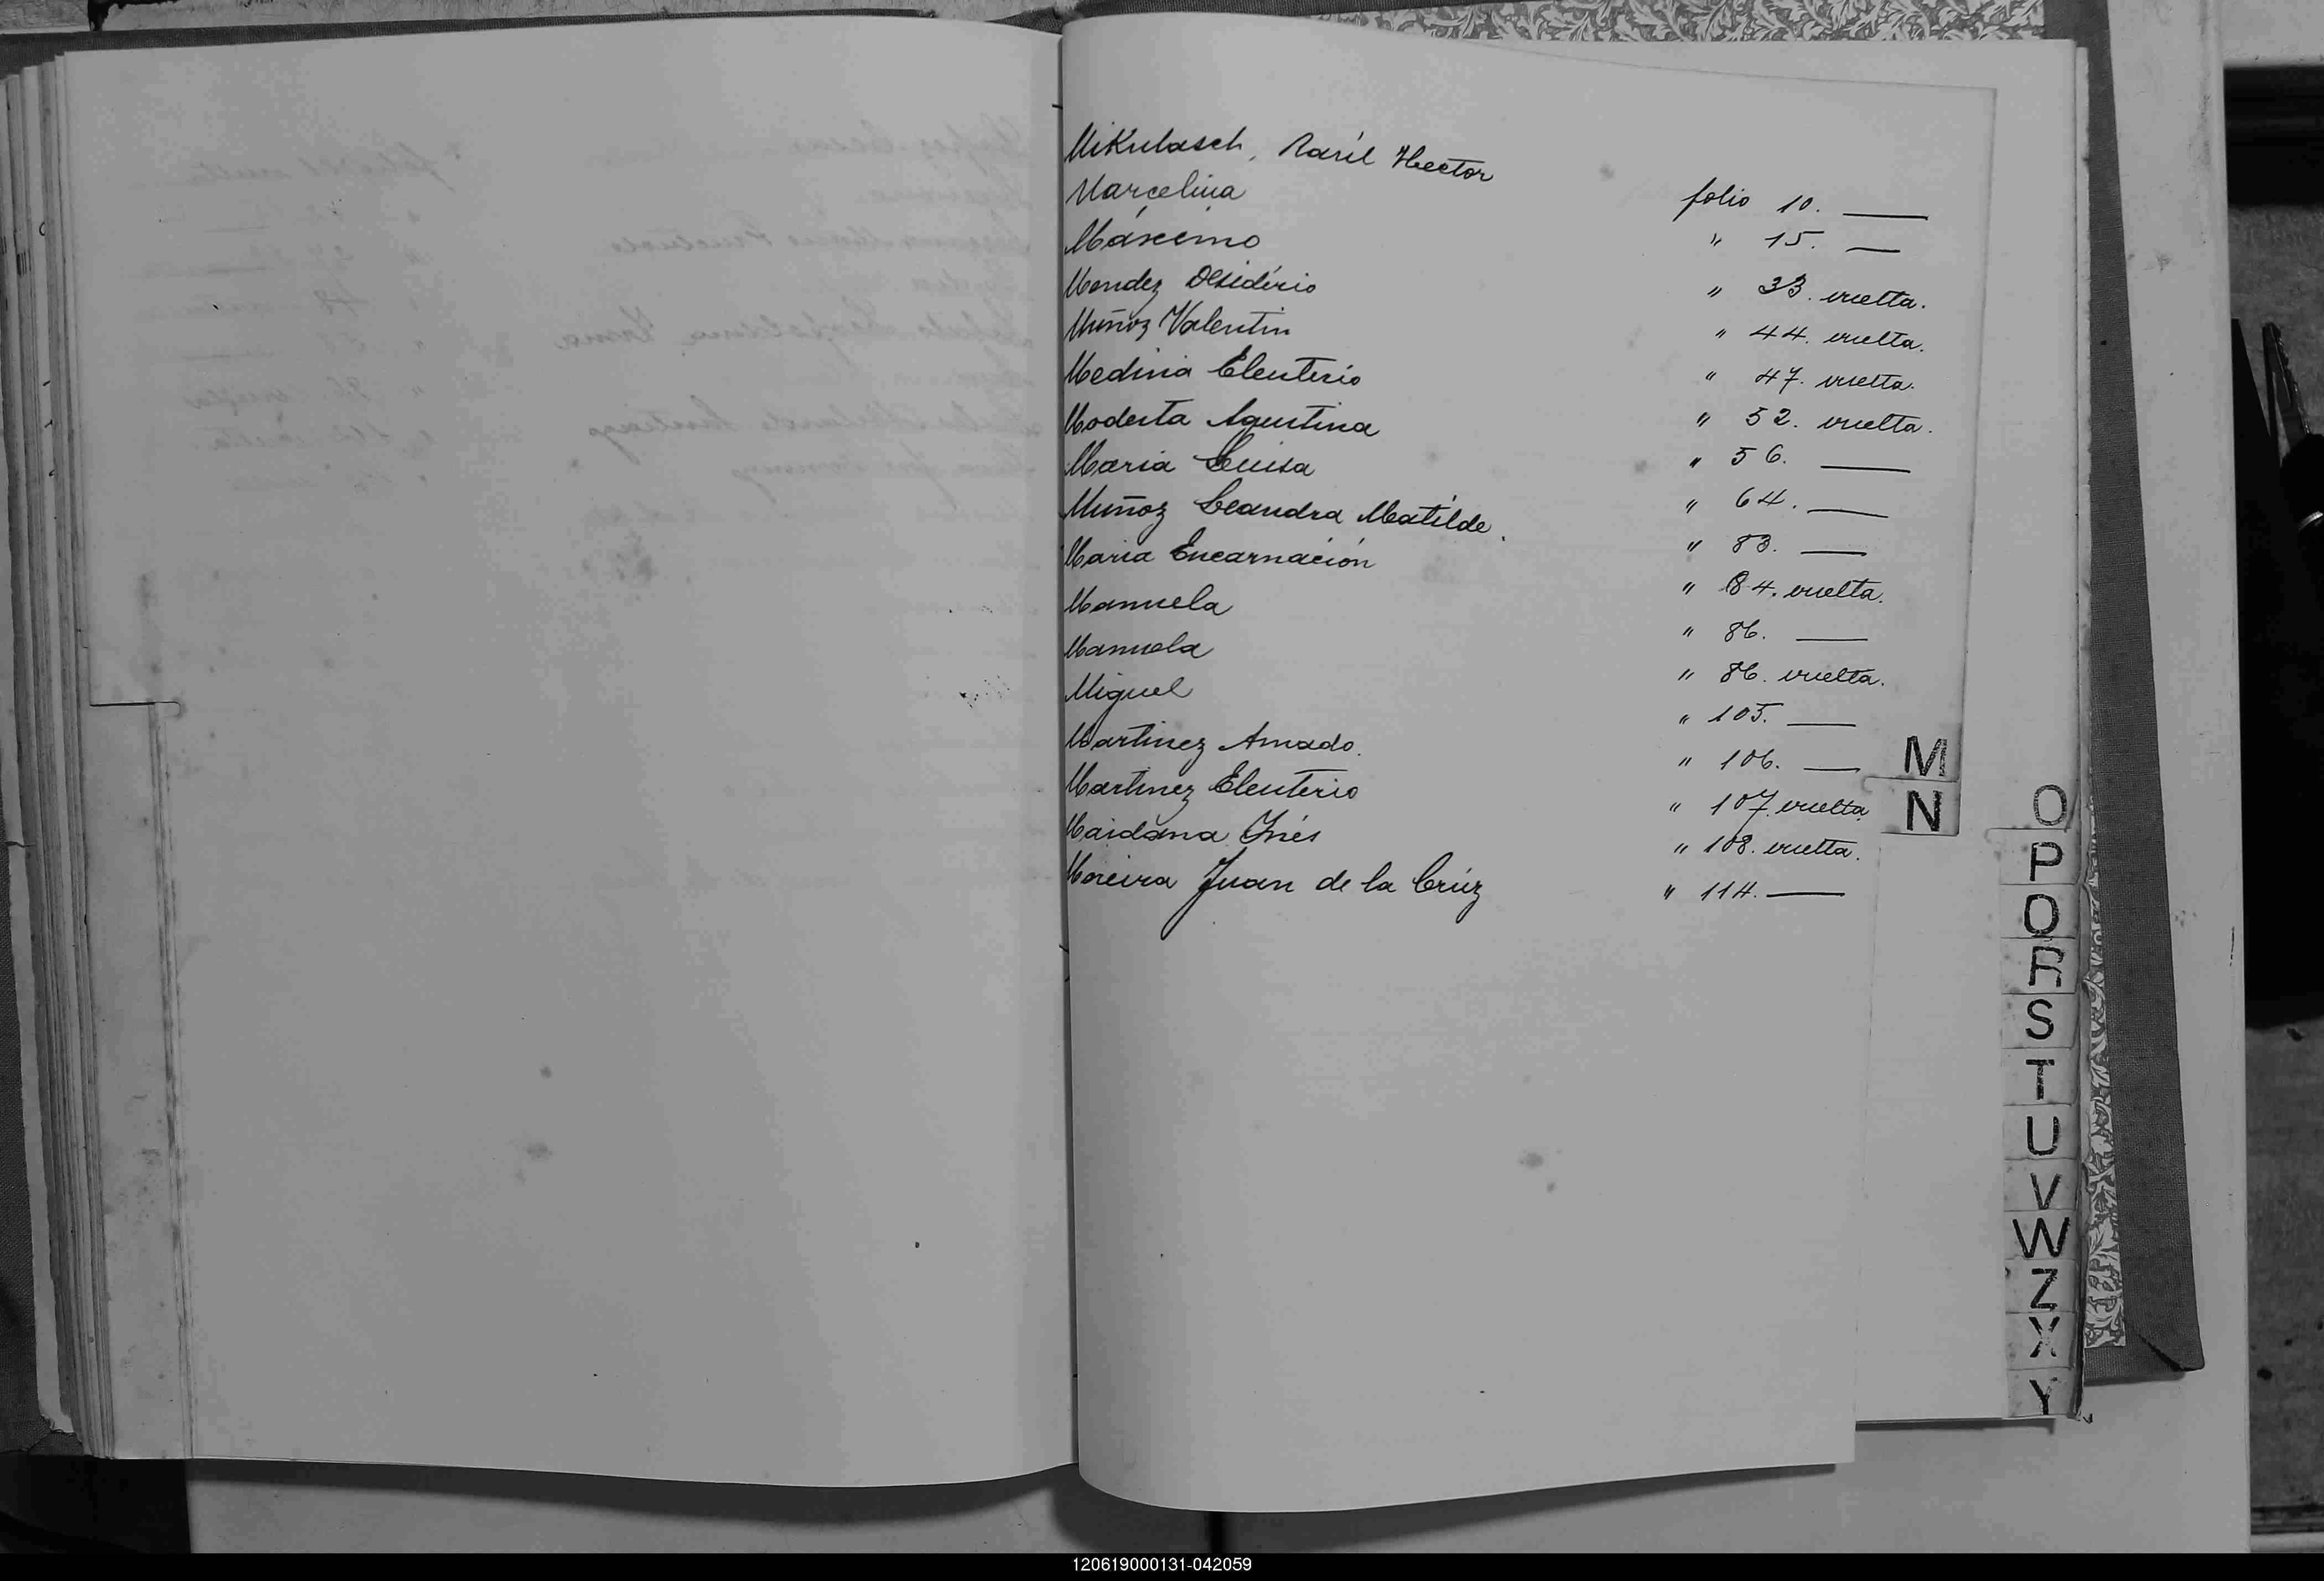 Mikulasch, Raúl Hector folio 10. —
Marcelina " 15. —
Máximo " 33. vuelta.
Mendez Desidério " 44. vuelta.
Muñoz Valentin " 47. vuelta.
Medina Eleuterio " 52. vuelta.
Modesta Agustina " 56. —
Maria Luisa " 64. —
Muñoz Leandra Matilde. " 83. —
Maria Encarnación " 84. vuelta.
Manuela " 86. —
Manuela " 86. vuelta.
Miguel " 105. —
Martinez Amado. " 106. —
Martinez Eleuterio " 107. vuelta
Maidana Inés " 108. vuelta.
Moreira Juan de la Crúz " 114. —
M
N
O
P
Q
R
S
T
U
V
W
Z
X
Y
120619000131-042059